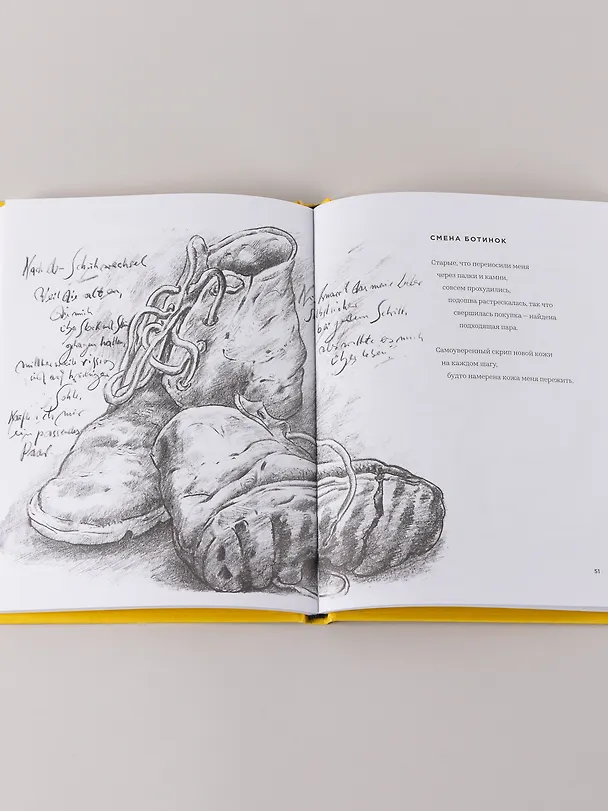 Nach dem Schuhwechsel
Weil die alten,
die mich
über Stock und Stein
getragen hatten,
mittlerweile rissig
und auf
Sohle,
kaufte ich mir
ein passendes
Paar
knarrt das neue Leder
selbstsicher
bei jedem Schritt,
als wollte es mich
überleben.
СМЕНА БОТИНОК
Старые, что переносили меня
через палки и камни,
совсем прохудились,
подошва растрескалась, так что
свершилась покупка – найдена
подходящая пара.
Самоуверенный скрип новой кожи
на каждом шагу,
будто намерена кожа меня пережить.
51